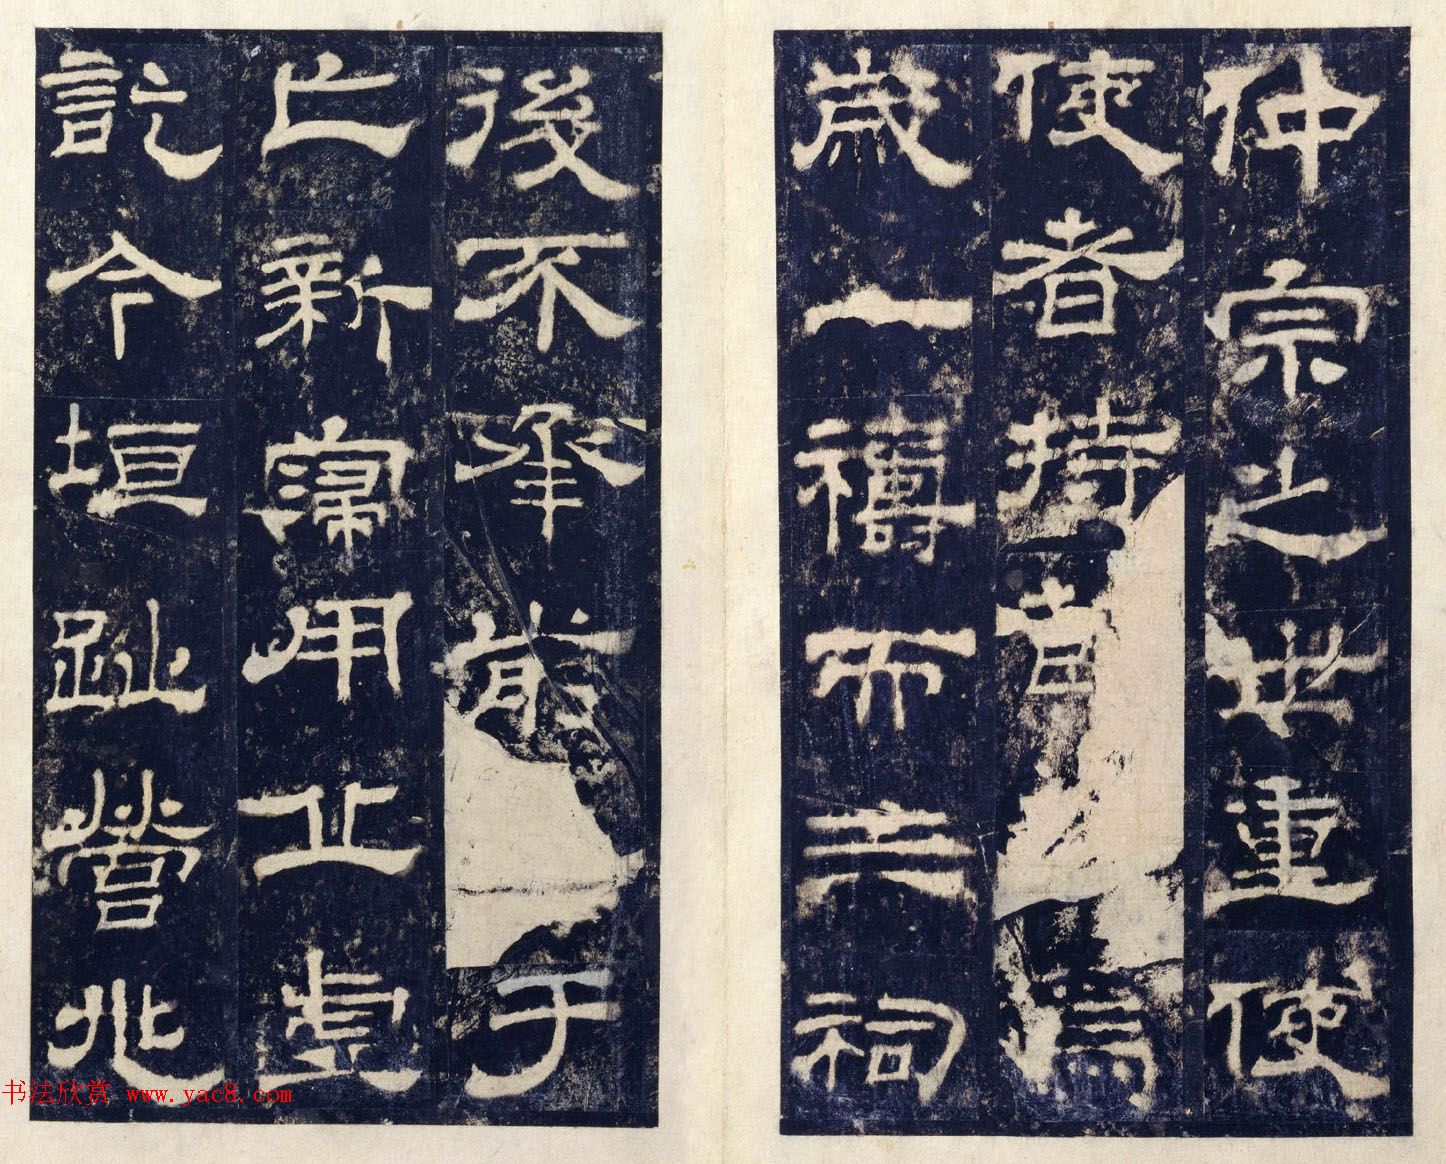 仲宗之世重使
使者持節焉
歲一禱而三祠
後不承前于
亡新寖用丘虛
訖今垣趾營兆
书法欣赏 www.yac8.com